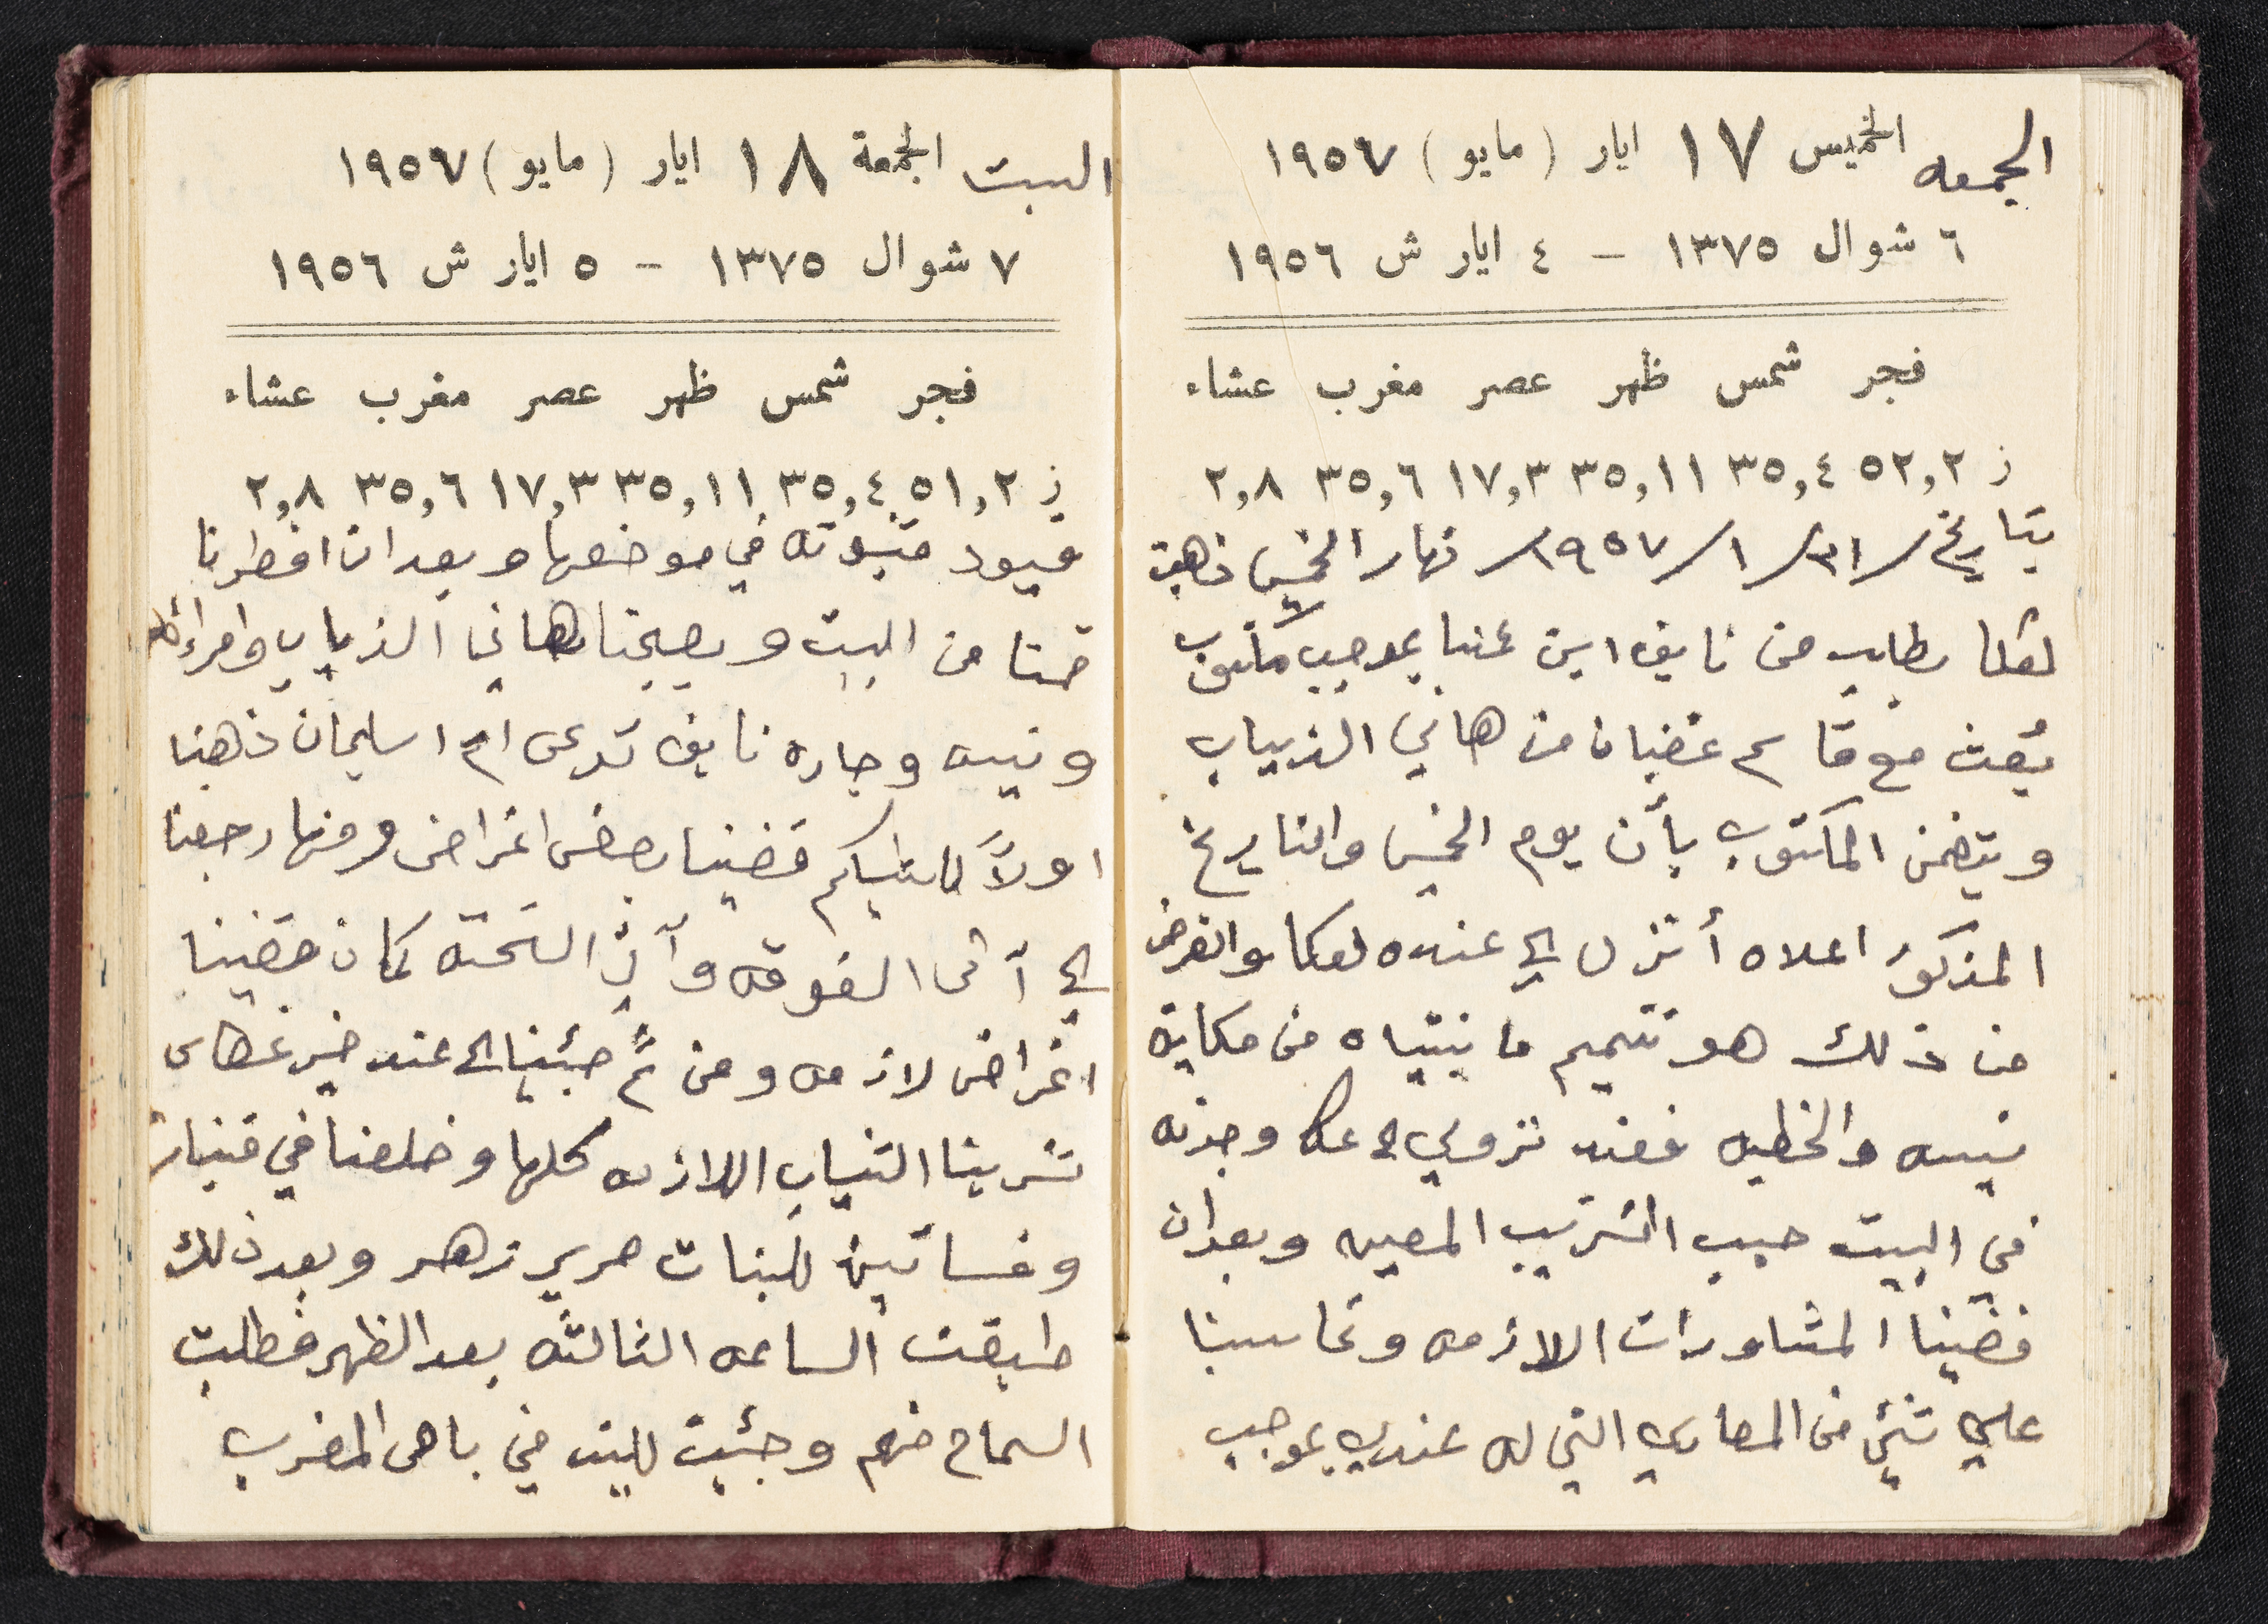 الجمعه الخميس ١٧ ايار (مايو) ١٩٥٧
٦ شوال ١٣٧٥ – ٤ ايار ش ١٩٥٦
فجر شمس ظهر عصر مغرب عشاء
ز ٥٢,٢ ٣٥,٤ ٣٥,١١ ١٧,٣ ٣٥,٦ ٢,٨
بتاريخ /٣١/١/١٩٥٧/ نهار الخميس ذهبت
لعكا بطلب من نايف ابن عمنا بموجب مكتوب
بُعث مع قاسم غضبان من هاني الذياب
ويتضمن المكتوب بأن يوم الخميس والتاريخ
المذكور اعلاه أنزل الى عنده لعكا والغرض
من ذلك هو تتميم ما بنيناه من حكاية
نيبه والخطبه فعند نزولي الى عكا وجدته
في البيت حسب الترتيب المعين وبعد ان
قضينا المشاورات اللازمه وتحاسبنا
على شئ من المصاري التي له عندي بموجب
السبت الجمعة ١٨ ايار (مايو) ١٩٥٧
٧ شوال ١٣٧٥ – ٥ ايار ش ١٩٥٦
فجر شمس ظهر عصر مغرب عشاء
ز ٥١,٢ ٣٥,٤ ٣٥,١١ ١٧,٣ ٣٥,٦ ٢,٨
قيود مثبوته في موضعها وبعد ان افطرنا
قمنا من البيت وبصحبتنا هاني الذياب وامرأته
ونيبه وجارة نايف تدعى ام اسليمان ذهبنا
اولاً قضينا بعض اغراض ومنها رجعنا
الى الفوقه التحته كمان قضينا
اغراض لازمه ومن ثمَّ جئنا الى عند خير
شرينا الثياب اللازمه كلها وخلصنا في
وفساتين للبنات حرير زهر وبعد ذلك
طبقت الساعه الثالثه بعد الظهر فطلبت
السماح منهم وجئت للبلد في باص المغرب